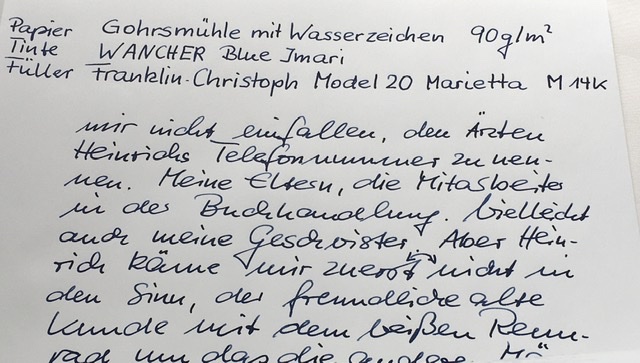 Papier Gohrsmühle mit Wasserzeichen 90g/m²
Tinte WANCHER Blue Imari
Füller Franklin-Christoph Model 20 Marietta M 14K
mir nicht einfallen, den Ärzten
Heinrichs Telefonnummer zu nen-
nen. Meine Eltern, die Mitarbeiter
in der Buchhandlung. Vielleicht
auch meine Geschwister. Aber Hein-
rich käme mir zuerst nicht in
den Sinn, der freundliche alte
Kunde mit dem beißen Renn-
rad um das die